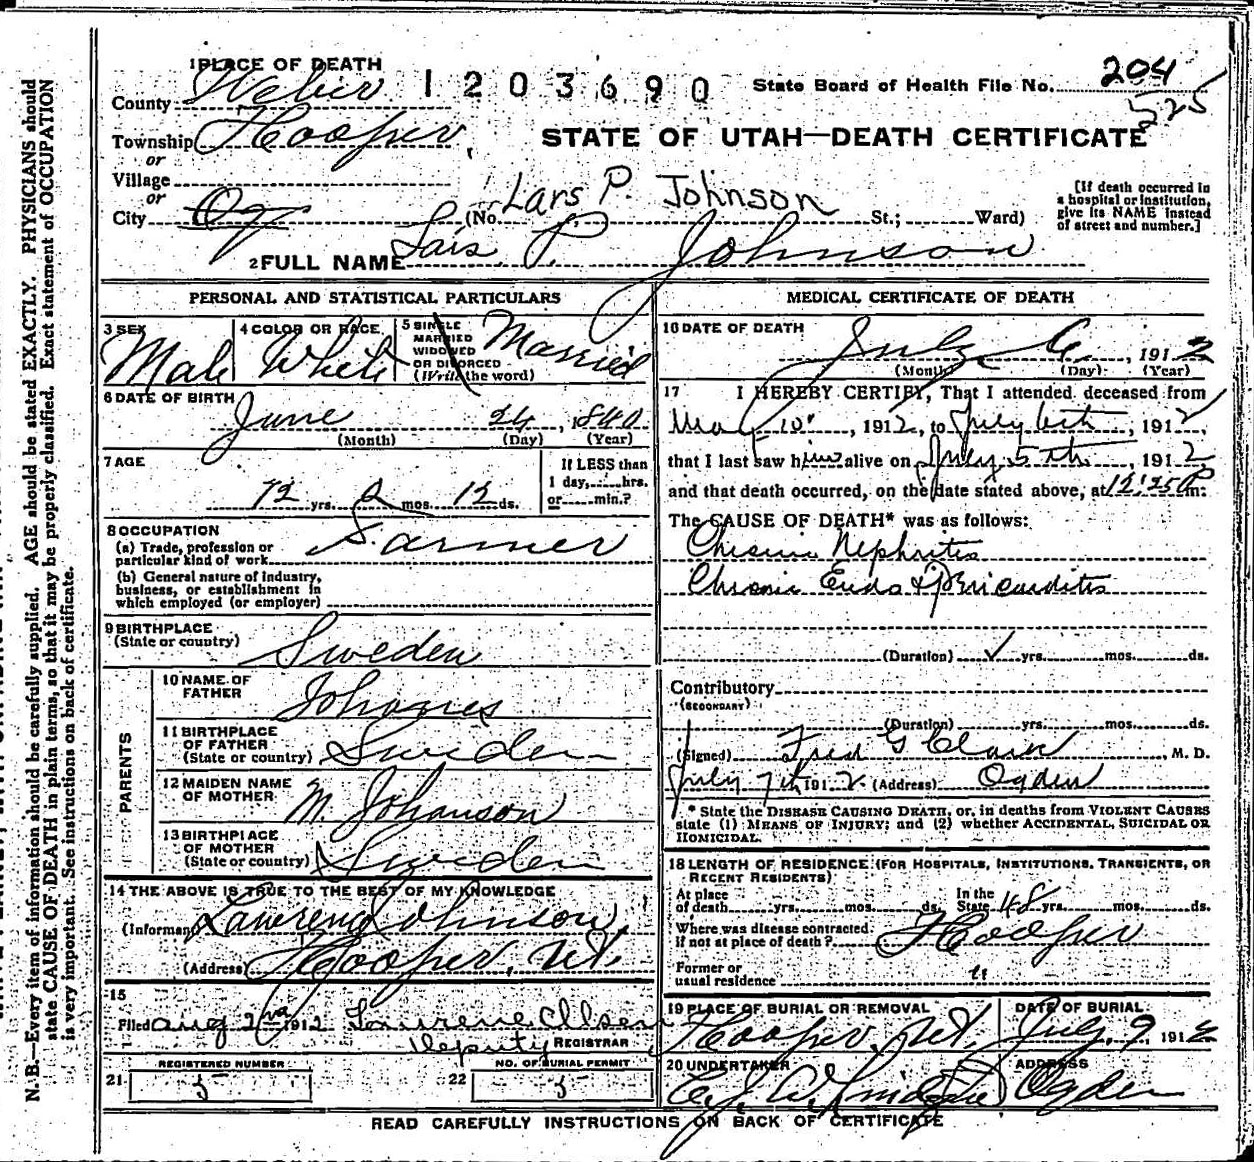 1 PLACE OF DEATH
County Weber 1203690 State Board of Health File No. 204
525
Township Hooper
or
STATE OF UTAH—DEATH CERTIFICATE
Village
or
City Og (No. St.; Ward)
Lars P. Johnson
[If death occurred in
a hospital or institution,
give its NAME instead
of street and number.]
2 FULL NAME Lars P. Johnson
PERSONAL AND STATISTICAL PARTICULARS
3 SEX Male
4 COLOR OR RACE White
5 SINGLE
MARRIED
WIDOWED
OR DIVORCED
(Write the word)
Married
6 DATE OF BIRTH
June 24, 1840
(Month) (Day) (Year)
7 AGE
72 yrs. 0 mos. 12 ds.
If LESS than
1 day, hrs.
or min.?
8 OCCUPATION
(a) Trade, profession or
particular kind of work Farmer
(b) General nature of industry,
business, or establishment in
which employed (or employer)
9 BIRTHPLACE
(State or country)
Sweden
PARENTS
10 NAME OF
FATHER
Johanes
11 BIRTHPLACE
OF FATHER
(State or country) Sweden
12 MAIDEN NAME
OF MOTHER M. Johanson
13 BIRTHPLACE
OF MOTHER
(State or country) Sweden
14 THE ABOVE IS TRUE TO THE BEST OF MY KNOWLEDGE
(Informant Johnson
(Address Hooper, Ut.
15
Filed Aug 2 1912 Olsen
Deputy REGISTRAR
REGISTERED NUMBER
21 5
NO. OF BURIAL PERMIT
22 5
MEDICAL CERTIFICATE OF DEATH
16 DATE OF DEATH
July 6, 1912
(Month) (Day) (Year)
17 I HEREBY CERTIFY, That I attended deceased from
May 10, 1912, to July 6th, 1912,
that I last saw him alive on July 5th, 1912
and that death occurred, on the date stated above, at 12:25 P m.
The CAUSE OF DEATH* was as follows:
Chronic Nephritis
Chronic Endo & Pericarditis
(Duration) ✓ yrs. mos. ds.
Contributory
(SECONDARY)
(Duration) yrs. mos. ds.
(Signed) Fred G Clark M. D.
July 7th 1912 (Address) Ogden
* State the DISEASE CAUSING DEATH, or, in deaths from VIOLENT CAUSES
state (1) MEANS OF INJURY; and (2) whether ACCIDENTAL, SUICIDAL OR
HOMICIDAL.
18 LENGTH OF RESIDENCE (FOR HOSPITALS, INSTITUTIONS, TRANSIENTS, OR
RECENT RESIDENTS)
At place
of death yrs. mos. ds.
In the
State 48 yrs. mos. ds.
Where was disease contracted
if not at place of death? Hooper
Former or
usual residence "
19 PLACE OF BURIAL OR REMOVAL
Hooper, Ut.
DATE OF BURIAL
July 9 1912
20 UNDERTAKER
ADDRESS
Ogden
READ CAREFULLY INSTRUCTIONS ON BACK OF CERTIFICATE
N. B.—Every item of information should be carefully supplied. AGE should be stated EXACTLY. PHYSICIANS should
state CAUSE OF DEATH in plain terms, so that it may be properly classified. Exact statement of OCCUPATION
is very important. See instructions on back of certificate.